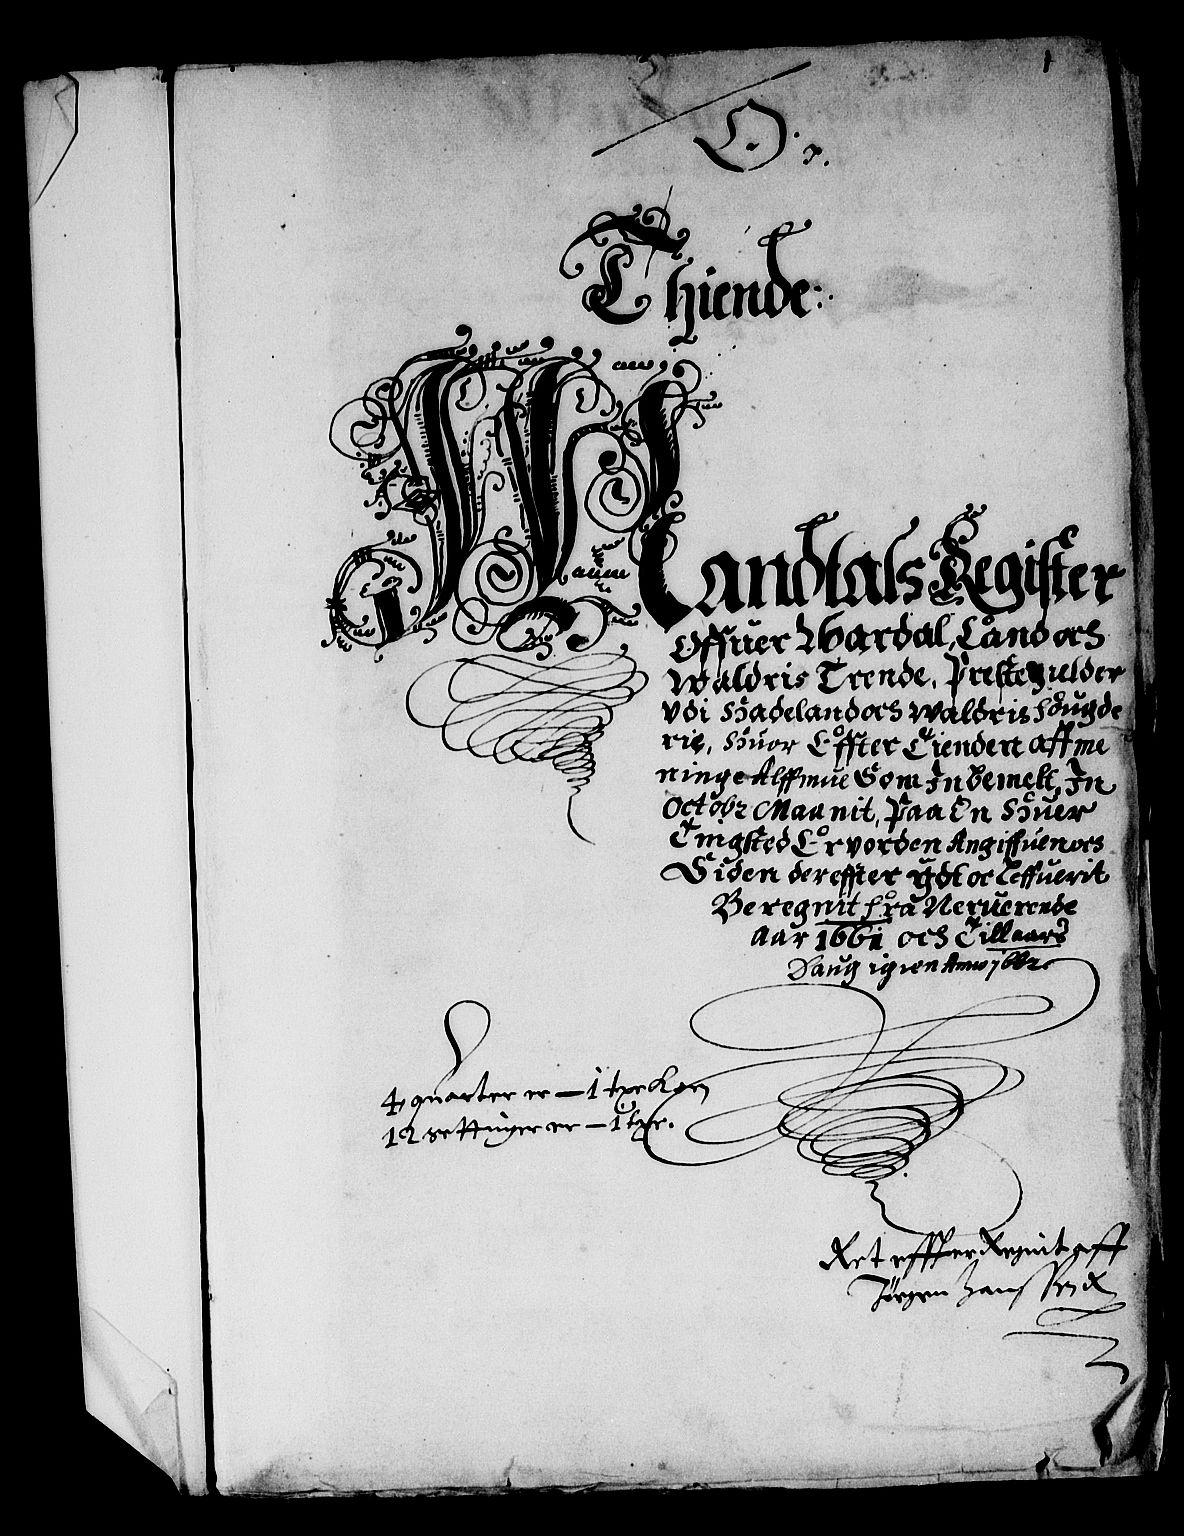 1
O. 7.
Thiende:
Mandtals Register
Offuer Wardal, Land och
Waldris Trende, Prestegielder
Vdi Hadeland och Waldris Fougde
rie, Huor Effter Tienden aff me
ninge Alffmue Som In bemelt, In
Octobr Maanit, Paa En Huer
Tingsted Er vorden Angiffuen och
Siden dereffter ydt oc Leffuerit
Beregnit fra Neruerende
Aar 1661 och Till aars
Daug igien Anno 1662
4 quarter er — 1 tne Korn
12 settinger er — 1 tne.
Ret effter Regnit aff
Jørgen Hanssen